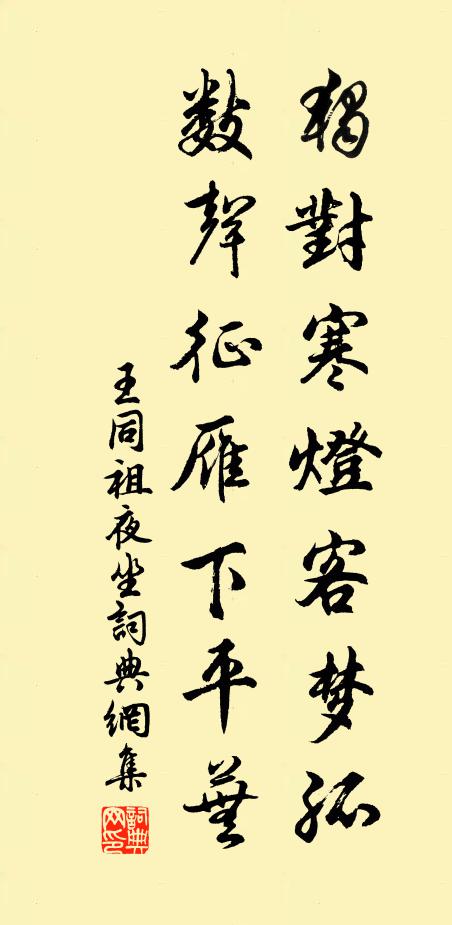 獨對寒燈客梦孤
數聲征雁下平蕪
王同祖夜坐詞典網集
詞典網印